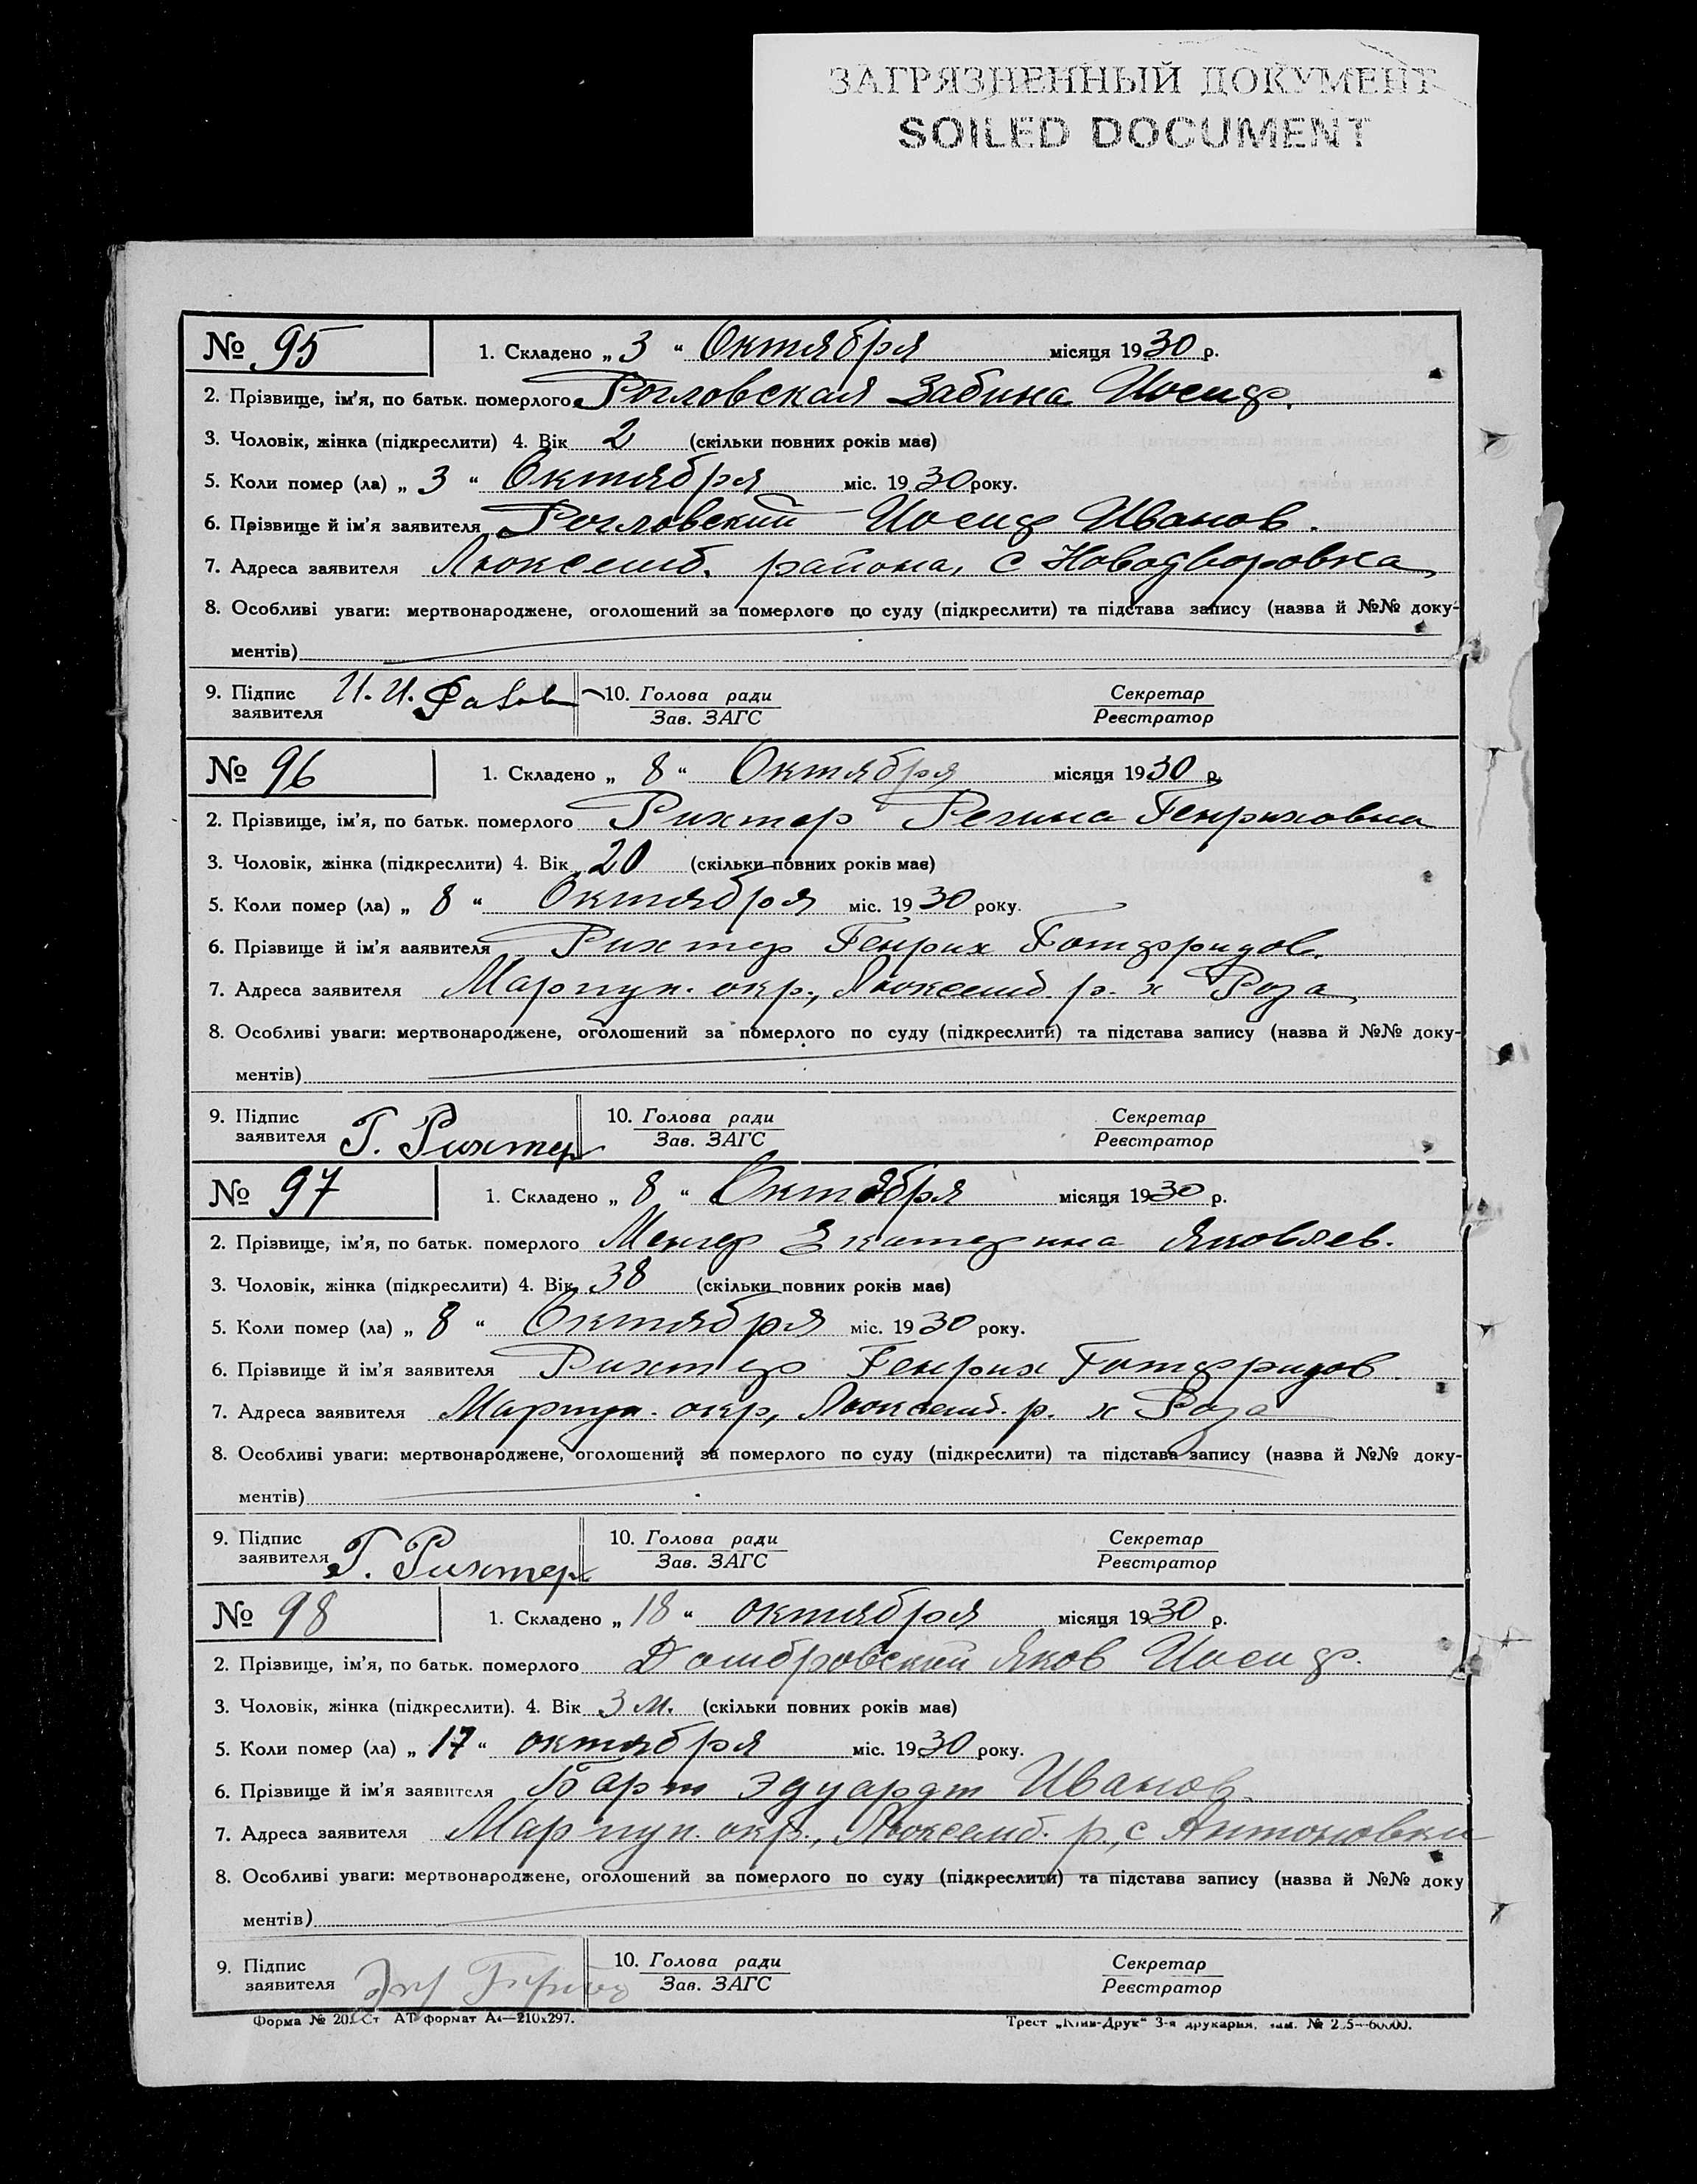 ЗАГРЯЗНЕННЫЙ ДОКУМЕНТ
SOILED DOCUMENT
№ 95 1. Складено „ 3 “ Октября місяця 1930 р.
2. Прізвище, ім’я, по батьк. померлого Рогловская Забина Иосиф.
3. Чоловік, жінка (підкреслити) 4. Вік 2 (скільки повних років має)
5. Коли помер (ла) „ 3 “ Октября міс. 1930 року.
6. Прізвище й ім’я заявителя Рогловский Иосиф Иванов.
7. Адреса заявителя Люксемб. района, с Новодворовка
8. Особливі уваги: мертвонароджене, оголошений за померлого по суду (підкреслити) та підстава запису (назва й №№ доку-
ментів)
9. Підпис заявителя И. И. 10. Голова ради Секретар
Зав. ЗАГС Реєстратор
№ 96 1. Складено „ 8 “ Октября місяця 1930 р.
2. Прізвище, ім’я, по батьк. померлого Рихтер Регина Генриховна
3. Чоловік, жінка (підкреслити) 4. Вік 20 (скільки повних років має)
5. Коли помер (ла) „ 8 “ Октября міс. 1930 року.
6. Прізвище й ім’я заявителя Рихтер Генрих Готфридов.
7. Адреса заявителя Мариуп. окр., Люксемб. р. х Роза
8. Особливі уваги: мертвонароджене, оголошений за померлого по суду (підкреслити) та підстава запису (назва й №№ доку-
ментів)
9. Підпис заявителя Г. Рихтер 10. Голова ради Секретар
Зав. ЗАГС Реєстратор
№ 97 1. Складено „ 8 “ Октября місяця 1930 р.
2. Прізвище, ім’я, по батьк. померлого Менгер Екатерина Яковлев.
3. Чоловік, жінка (підкреслити) 4. Вік 38 (скільки повних років має)
5. Коли помер (ла) „ 8 “ Октября міс. 1930 року.
6. Прізвище й ім’я заявителя Рихтер Генрих Готфридов.
7. Адреса заявителя Мариуп. окр., Люксемб. р. х Роза
8. Особливі уваги: мертвонароджене, оголошений за померлого по суду (підкреслити) та підстава запису (назва й №№ доку-
ментів)
9. Підпис заявителя Г. Рихтер 10. Голова ради Секретар
Зав. ЗАГС Реєстратор
№ 98 1. Складено „ 18 “ октября місяця 1930 р.
2. Прізвище, ім’я, по батьк. померлого Домбровский Яков Иосиф.
3. Чоловік, жінка (підкреслити). 4. Вік 3 м. (скільки повних років має)
5. Коли помер (ла) „ 17 “ октября міс. 1930 року.
6. Прізвище й ім’я заявителя Барт Эдуардт Иванов.
7. Адреса заявителя Мариуп. окр., Люксемб. р, с Антоновки
8. Особливі уваги: мертвонароджене, оголошений за померлого по суду (підкреслити) та підстава запису (назва й №№ доку
ментів)
9. Підпис заявителя 10. Голова ради Секретар
Зав. ЗАГС Реєстратор
Форма № 20 Ст АТ формат А4—210x297. Трест „Київ-Друк“ 3-я друкарня, зам. №